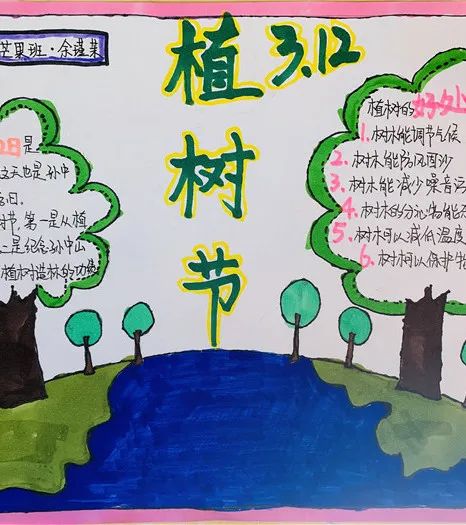 芒果班·余瑾萊
植树节
3.12
日是
这天也是孙中
忌日。
树节,第一是从植
二是纪念孙中山
植树造林的功绩
植树的好处
1.树木能调节气候
2.树木能防风固沙
3.树木能减少噪音污
4.树木的分泌物能
5.树木可以减低温度
6.树木可以保护